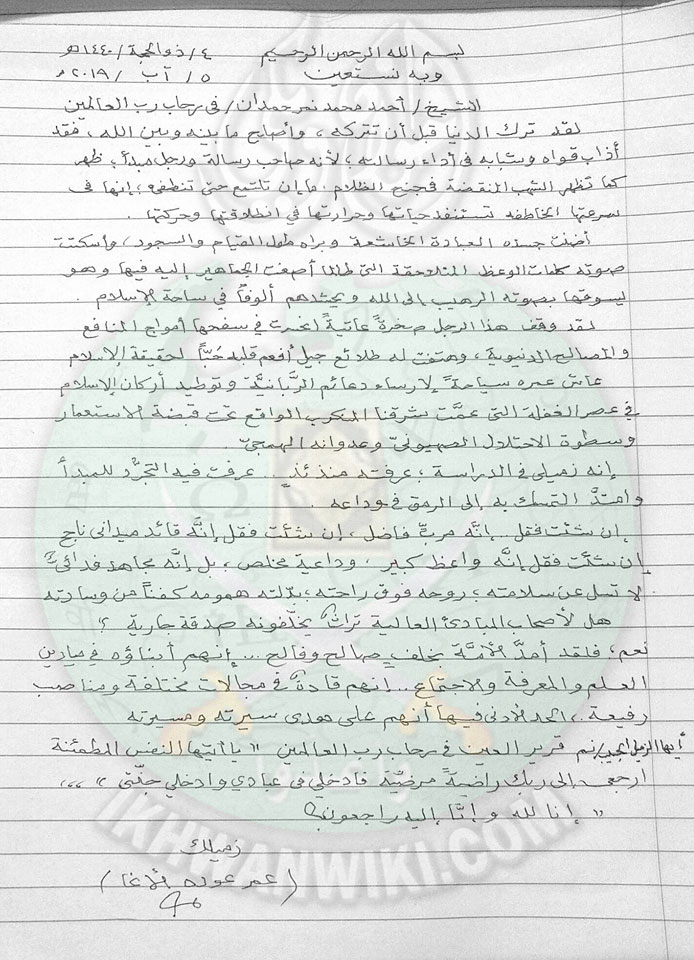 بسم الله الرحمن الرحيم ٤/ ذو الحجة/ ١٤٤٠هـ
وبه نستعين ٥/ آب/ ٢٠١٩م
الشيخ/ أحمد محمد نمر حمدان/ في رحاب رب العالمين
لقد ترك الدنيا قبل أن تتركه، وأصلح ما بينه وبين الله، فقد
أذاب قواه وشبابه في أداء رسالته؛ لأنه صاحب رسالة ورجل مبدأ؛ ظهر
كما تظهر الشهب المنقضة في جنح الظلام. ما إن تلتمع حتى تنطفئ؛ إنها في
سرعتها الخاطفة تستنفد حياتها وحرارتها في انطلاقتها وحركتها.
أضنت جسده العبادة الخاشعة وبراه طول القيام والسجود، وأسكتت
صوته كلمات الوعظ المتلاحقة التي طالما أصغت الجماهير إليه فيها وهو
يسوقها بصوته الرهيب إلى الله ويحشدهم ألوفاً في ساحة الإسلام.
لقد وقف هذا الرجل صخرةً عاتيةً انحسرت في سفحها أمواج المنافع
والمصالح الدنيوية، وهتفت له طلائع جيل أفعم قلبه حُبّاً لحقيقة الإسلام
عاش عمره سياحةً لإرساء دعائم الرَّبانيَّة وتوطيد أركان الإسلام
في عصر الغفلة التي عمَّت شرقنا المنكوب الواقع تحت قبضة الاستعمار
وسطوة الاحتلال الصهيونيّ وعدوانه الهمجيّ
إنه زميلي في الدراسة؛ عرفته منذئذٍ... عرفت فيه التجرُّد للمبدأ
وامتدَّ التمسك به إلى الرمق في وداعه.
إن شئت فقل... إنَّه مربٍّ فاضل، إن شئت فقل إنَّه قائد ميداني ناجح
إن شئت فقل إنَّه واعظ كبير، وداعية مخلص، بل إنَّه مجاهد فدائيّ
لا تسل عن سلامته؛ روحه فوق راحته، بدّلته همومه كفناً من وسادته
هل لأصحاب المبادئ العالية تراثٌ يخلّفونه صدقة جارية؟
نعم، فلقد أمدَّ الأمَّة بخلفٍ صالح وفالح... إنهم أبناؤه في ميادين
العلم والمعرفة والاجتماع... إنهم قادةٌ في مجالات مختلفة ومناصب
رفيعة.. الحد الأدنى فيها أنهم على هدى سيرته ومسيرته
أيها الزميل الحبيب/ نم قرير العين في رحاب رب العالمين "يا أيتها النفس المطمئنة
ارجعي إلى ربك راضيةً مرضيّة فادخلي في عبادي وادخلي جنّتي"،،،
"إنا لله وإنّا إليه راجعون"
زميلك
(عمر عودة الأغا)
IKHWANWIKI.COM